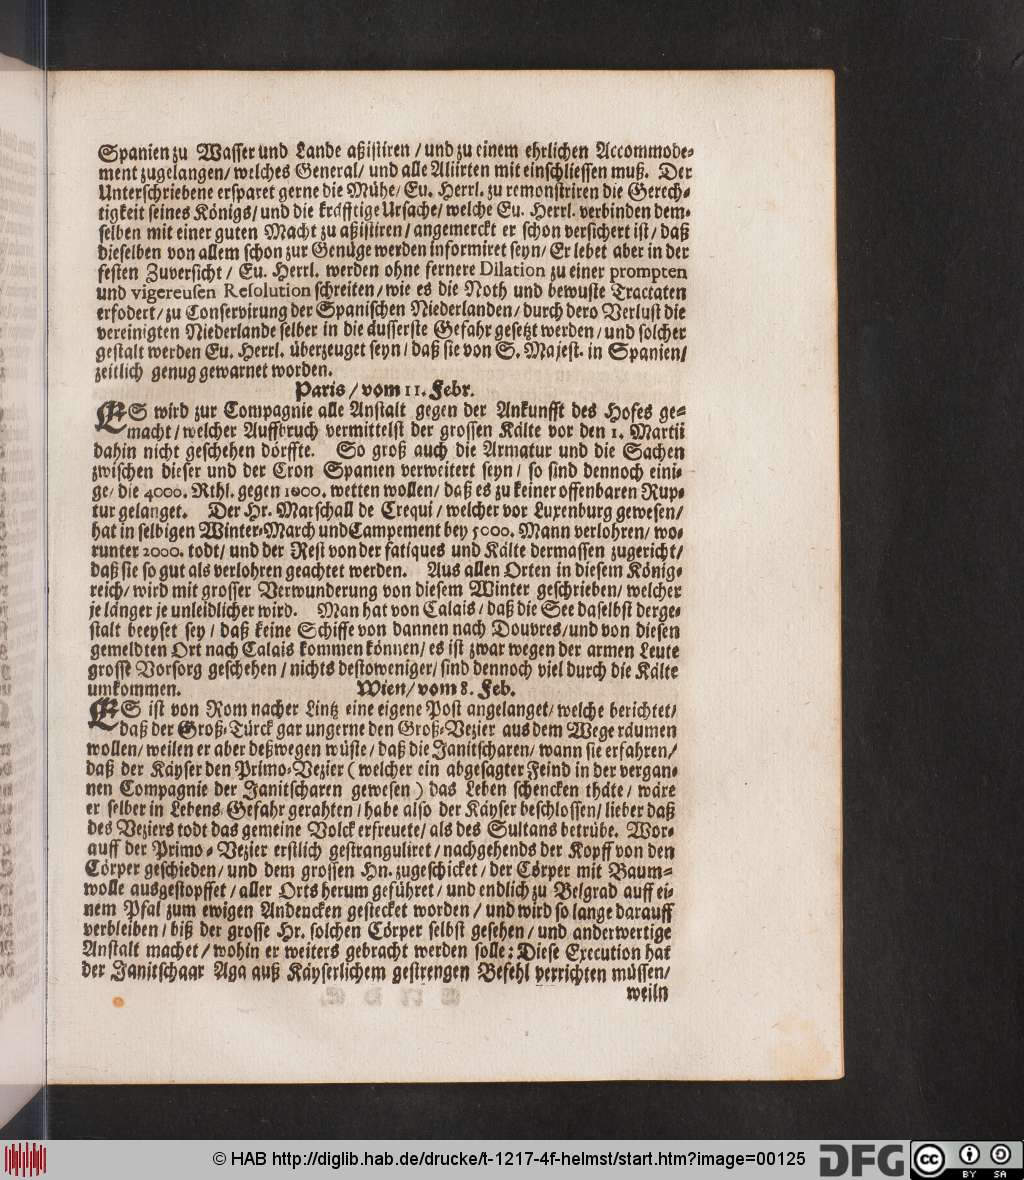 Spanien zu Wasser und Lande aßistiren / und zu einem ehrlichen Accommode-
ment zugelangen/ welches General/ und alle Aliirten mit einschliessen muß. Der
Unterschriebene ersparet gerne die Mühe/ Eu. Herrl. zu remonstriren die Gerech-
tigkeit seines Königs/ und die kräfftige Ursache/ welche Eu. Herrl. verbinden dem-
selben mit einer guten Macht zu aßistiren/ angemerckt er schon versichert ist/ daß
dieselben von allem schon zur Genüge werden informiret seyn/ Er lebet aber in der
festen Zuversicht / Eu. Herrl. werden ohne fernere Dilation zu einer prompten
und vigereusen Resolution schreiten/ wie es die Noth und bewuste Tractaten
erfodert/ zu Conservirung der Spanischen Niederlanden/ durch dero Verlust die
vereinigten Niederlande selber in die äusserste Gefahr gesetzt werden/ und solcher
gestalt werden Eu. Herrl. überzeuget seyn/ daß sie von S. Majest. in Spanien/
zeitlich genug gewarnet worden.
Paris / vom 11. Febr.
ES wird zur Compagnie alle Anstalt gegen der Ankunfft des Hofes ge-
macht/ welcher Auffbruch vermittelst der grossen Kälte vor den 1. Martii
dahin nicht geschehen dörffte. So groß auch die Armatur und die Sachen
zwischen dieser und der Cron Spanien verweitert seyn/ so sind dennoch eini-
ge/ die 4000. Rthl. gegen 1000. wetten wollen/ daß es zu keiner offenbaren Rup-
tur gelanget. Der Hr. Marschall de Crequi/ welcher vor Luxenburg gewesen/
hat in selbigen Winter-March und Campement bey 5000. Mann verlohren/ wo-
runter 2000. todt/ und der Rest von der fatiques und Kälte dermassen zugericht/
daß sie so gut als verlohren geachtet werden. Aus allen Orten in diesem König-
reich/ wird mit grosser Verwunderung von diesem Winter geschrieben/ welcher
je länger je unleidlicher wird. Man hat von Calais/ daß die See daselbst derge-
stalt beeyset sey/ daß keine Schiffe von dannen nach Douvres/und von diesen
gemeldten Ort nach Calais kommen können/ es ist zwar wegen der armen Leute
grosse Vorsorg geschehen/ nichts destoweniger/ sind dennoch viel durch die Kälte
umkommen. Wien/ vom 8. Feb.
ES ist von Rom nacher Lintz eine eigene Post angelanget/ welche berichtet/
daß der Groß-Türck gar ungerne den Groß-Vezier aus dem Wege räumen
wollen/ weilen er aber deßwegen wüste/ daß die Janitscharen/ wann sie erfahren/
daß der Käyser den Primo-Vezier ( welcher ein abgesagter Feind in der vergan-
nen Compagnie der Janitscharen gewesen ) das Leben schencken thäte/ wäre
er selber in Lebens-Gefahr gerahten/ habe also der Käyser beschlossen/ lieber daß
des Veziers todt das gemeine Volck erfreuete/ als des Sultans betrübe. Wor-
auff der Primo-Vezier erstlich gestranguliret/ nachgehends der Kopff von den
Cörper geschieden/ und dem grossen Hn. zugeschicket/ der Cörper mit Baum-
wolle ausgestopffet/ aller Orts herum geführet/ und endlich zu Belgrad auff ei-
nem Pfal zum ewigen Andencken gestecket worden/ und wird so lange darauff
verbleiben/ biß der grosse Hr. solchen Cörper selbst gesehen/ und anderwertige
Anstalt machet/ wohin er weiters gebracht werden solle: Diese Execution hat
der Janitschaar Aga auß Käyserlichem gestrengen Befehl verrichten müssen/
weiln
© HAB http://diglib.hab.de/drucke/t-1217-4f-helmst/start.htm?image=00125
DFG
cc
BY SA